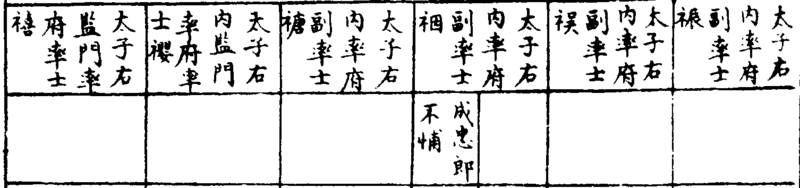 太子右
内率府
副率士
祳
太子右
内率府
副率士
祦
太子右
内率府
副率士
太子右
内率府
副率士
禟
太子右
内監門
率府率
士
太子右
監門率
府率士
禧
成忠郎
不悑